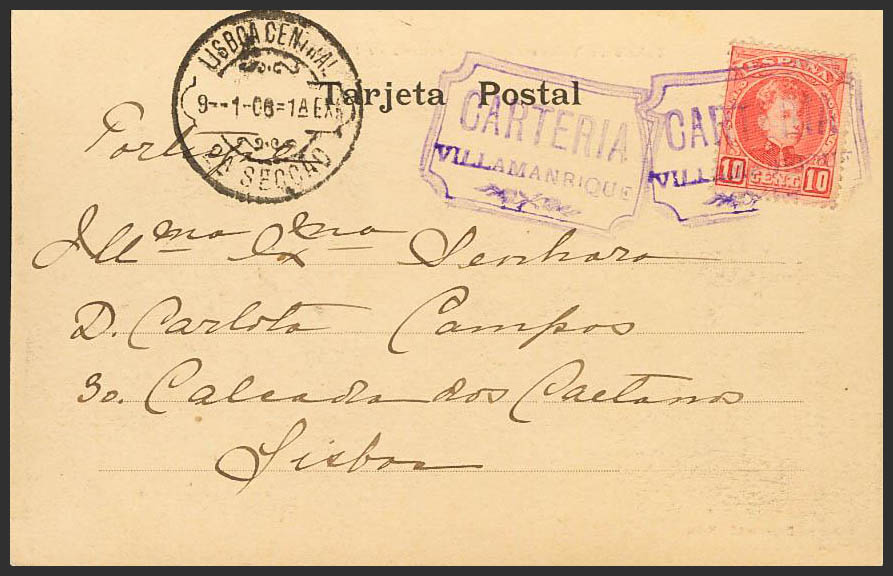 LISBOA CENTRAL
9--1-06=1A EXP
SECCAO
Tarjeta Postal
CARTERIA
VILLAMANRIQUE
CARTERIA
VILLAM
ESPAÑA
10 CENT 10
Illma Exma Senhora
D. Carlota Campos
30. Calcada dos Caetanos
Lisboa